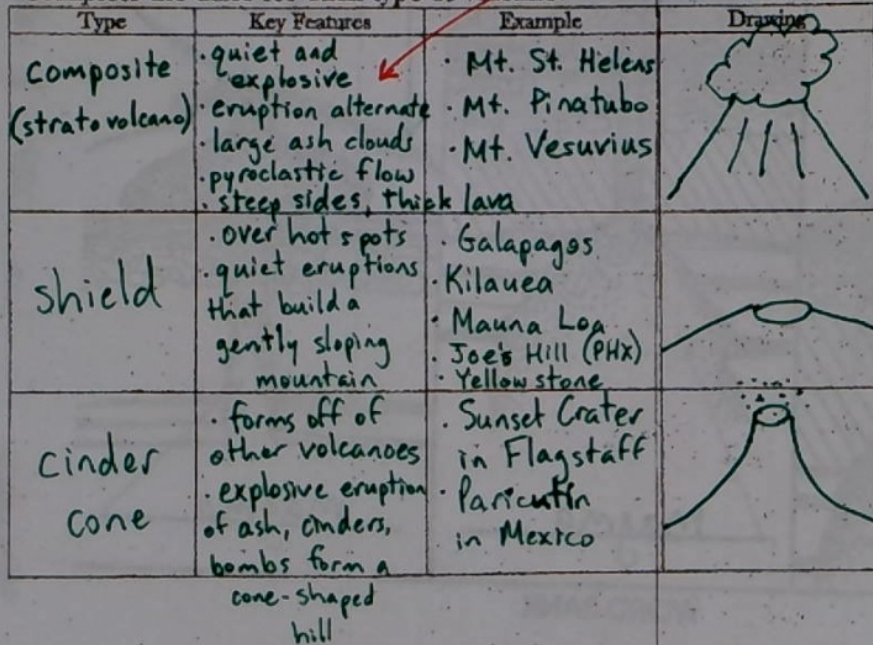 Type Key Features Example Drawing
composite
(stratovolcano)
· quiet and
explosive
· eruption alternate
· large ash clouds
· pyroclastic flow
· steep sides, thick lava
· Mt. St. Helens
· Mt. Pinatubo
· Mt. Vesuvius
shield
· over hot spots
· quiet eruptions
that build a
gently sloping
mountain
· Galapagos
· Kilauea
· Mauna Loa
· Joe's Hill (PHX)
· Yellowstone
cinder
cone
· forms off of
other volcanoes
· explosive eruption
of ash, cinders,
bombs form a
cone-shaped
hill
· Sunset Crater
in Flagstaff
· Paricutin
in Mexico